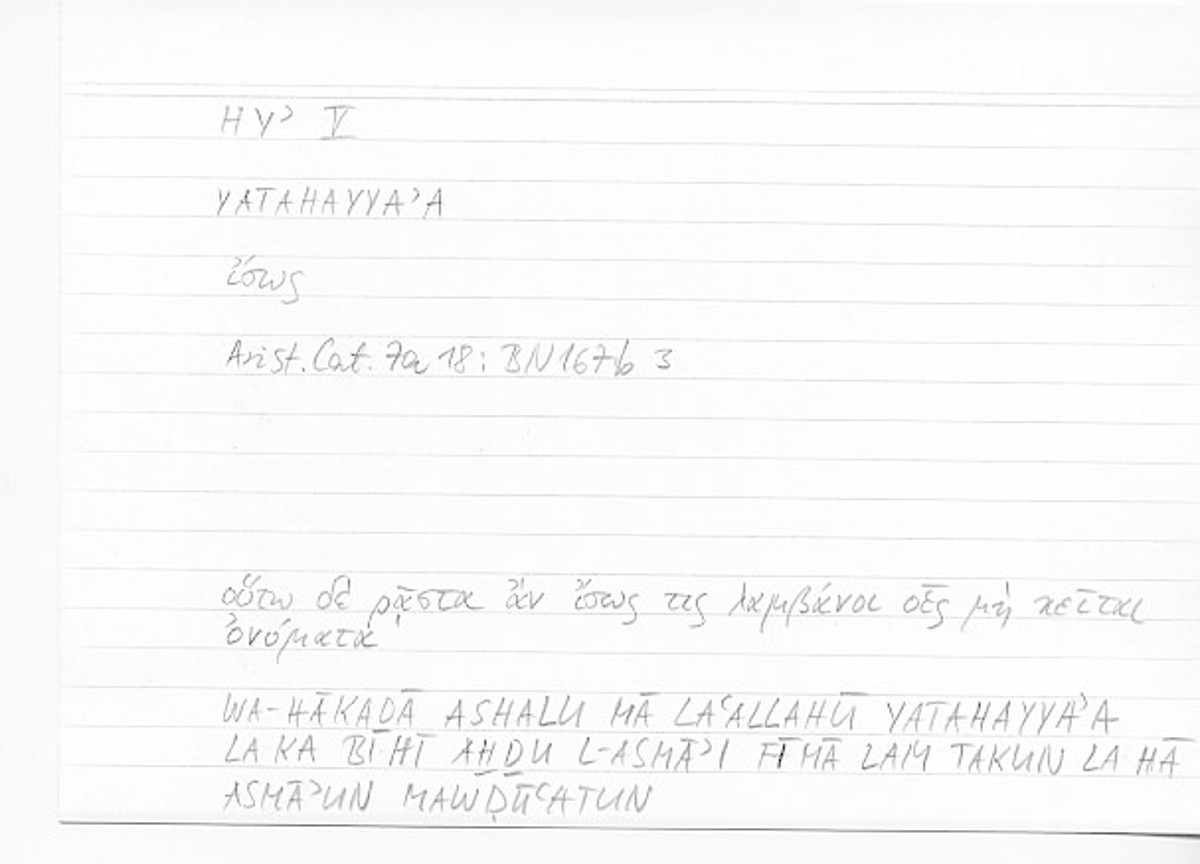 HYʾ V
YATAHAYYAʾA
ἴσως
Arist. Cat. 7a 18 : BN 167b 3
οὕτω δὲ ῥᾷστα ἂν ἴσως τις λαμβάνοι οἷς μὴ κεῖται
ὀνόματα
WA-HĀKAḎĀ ASHALU MĀ LAʿALLAHŪ YATAHAYYAʾA
LA KA BĪHĪ AḪḎU L-ASMĀʾI FĪMĀ LAM TAKUN LA HĀ
ASMĀʾUN MAWḌŪʿATUN